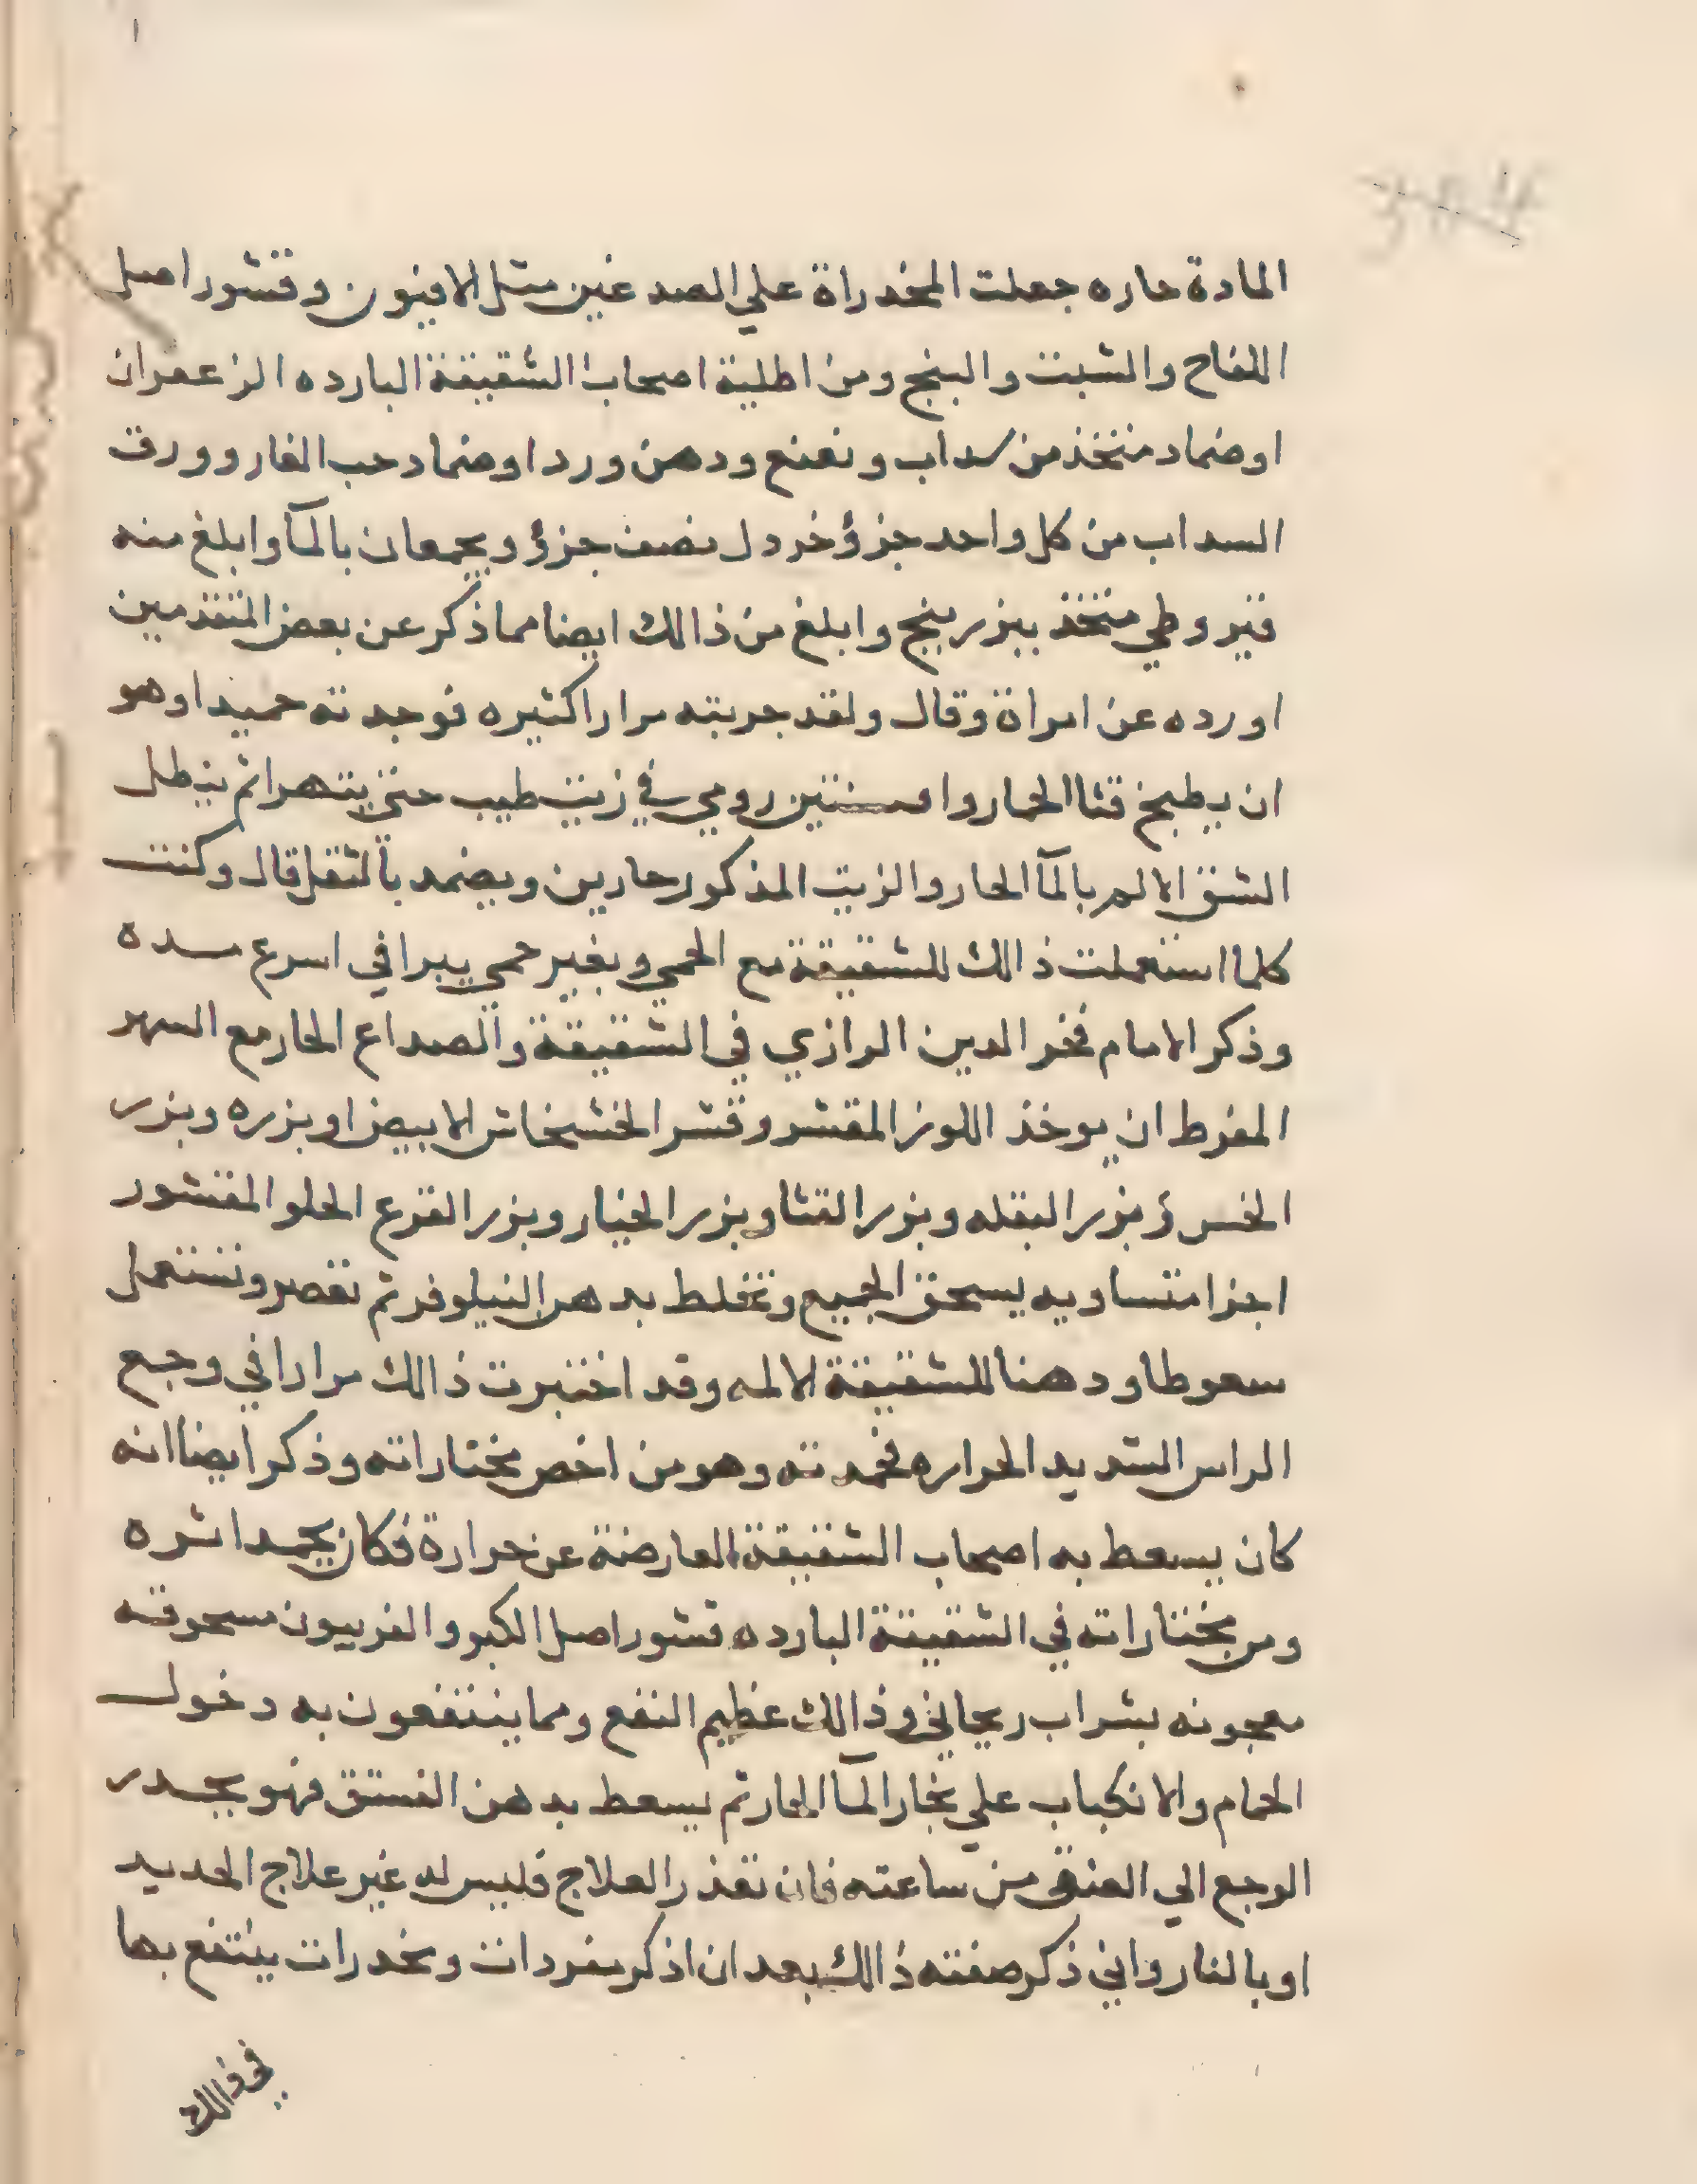 المادة حاره جعلت المخدراة علي الصدغين مثل الافيون وقشور اصل
اللفاح والشبت والبنج ومن اطلية اصحاب الشقيقة البارده الزعفران
اوضماد متخذ من سداب ونعنع ودهن ورد اوضماد حب الغار وورق
السداب من كل واحد جزؤ خردل نصف جزؤ ويجمعان بالمآ وابلغ منه
قيروطي متخذ ببزر بنج وابلغ من ذالك ايضا مما ذكر عن بعض المتقدمين
اورده عن امراة وقال ولقد جربته مرارا كثيره فوجدته حميدا وهو
ان يطبخ قثا الحمار وافسنتين رومي في زيت طيب حتي يتهرا ثم ينطل
الشق الالم بالمآ الحار والزيت المذكور حارين ويضمد بالثفل قال وكنت
كلما استعملت ذالك للشقيقة مع الحمي وبغير حمي يبرا في اسرع مده
وذكر الامام فخر الدين الرازي في الشقيقة والصداع الحار مع السهر
المفرط ان يوخذ اللوز المقشر وقشر الخشخاش الابيض او بزره وبزر
الخس وبزر البقله وبزر القثا وبزر الخيار وبزر القرع الحلو المقشور
اجزا متساويه يسحق الجميع وتخلط بدهن النيلوفر ثم تعصر وتستعمل
سعوطا ودهنا للشقيقة الالمه وقد اختبرت ذالك مرارا في وجع
الراس الشديد الحراره فحمدته وهو من اخص مختاراته وذكر ايضا انه
كان يسعط به اصحاب الشقيقة العارضة عن حرارة فكان يحمد اثره
ومن مختاراته في الشقيقة البارده قشور اصل الكبر والفربيون مسحوقه
معجونه بشراب ريحاني وذالك عظيم النفع ومما ينتفعون به دخول
الحمام والانكباب علي بخار المآ الحار ثم يسعط بدهن الفستق فهو يحدر
الوجع الي العنق من ساعته فان تعذر العلاج فليس له غير علاج الحديد
او بالنار واني ذكر صفته ذالك بعد ان اذكر مفردات ومخدرات ينتفع بها
في ذالك